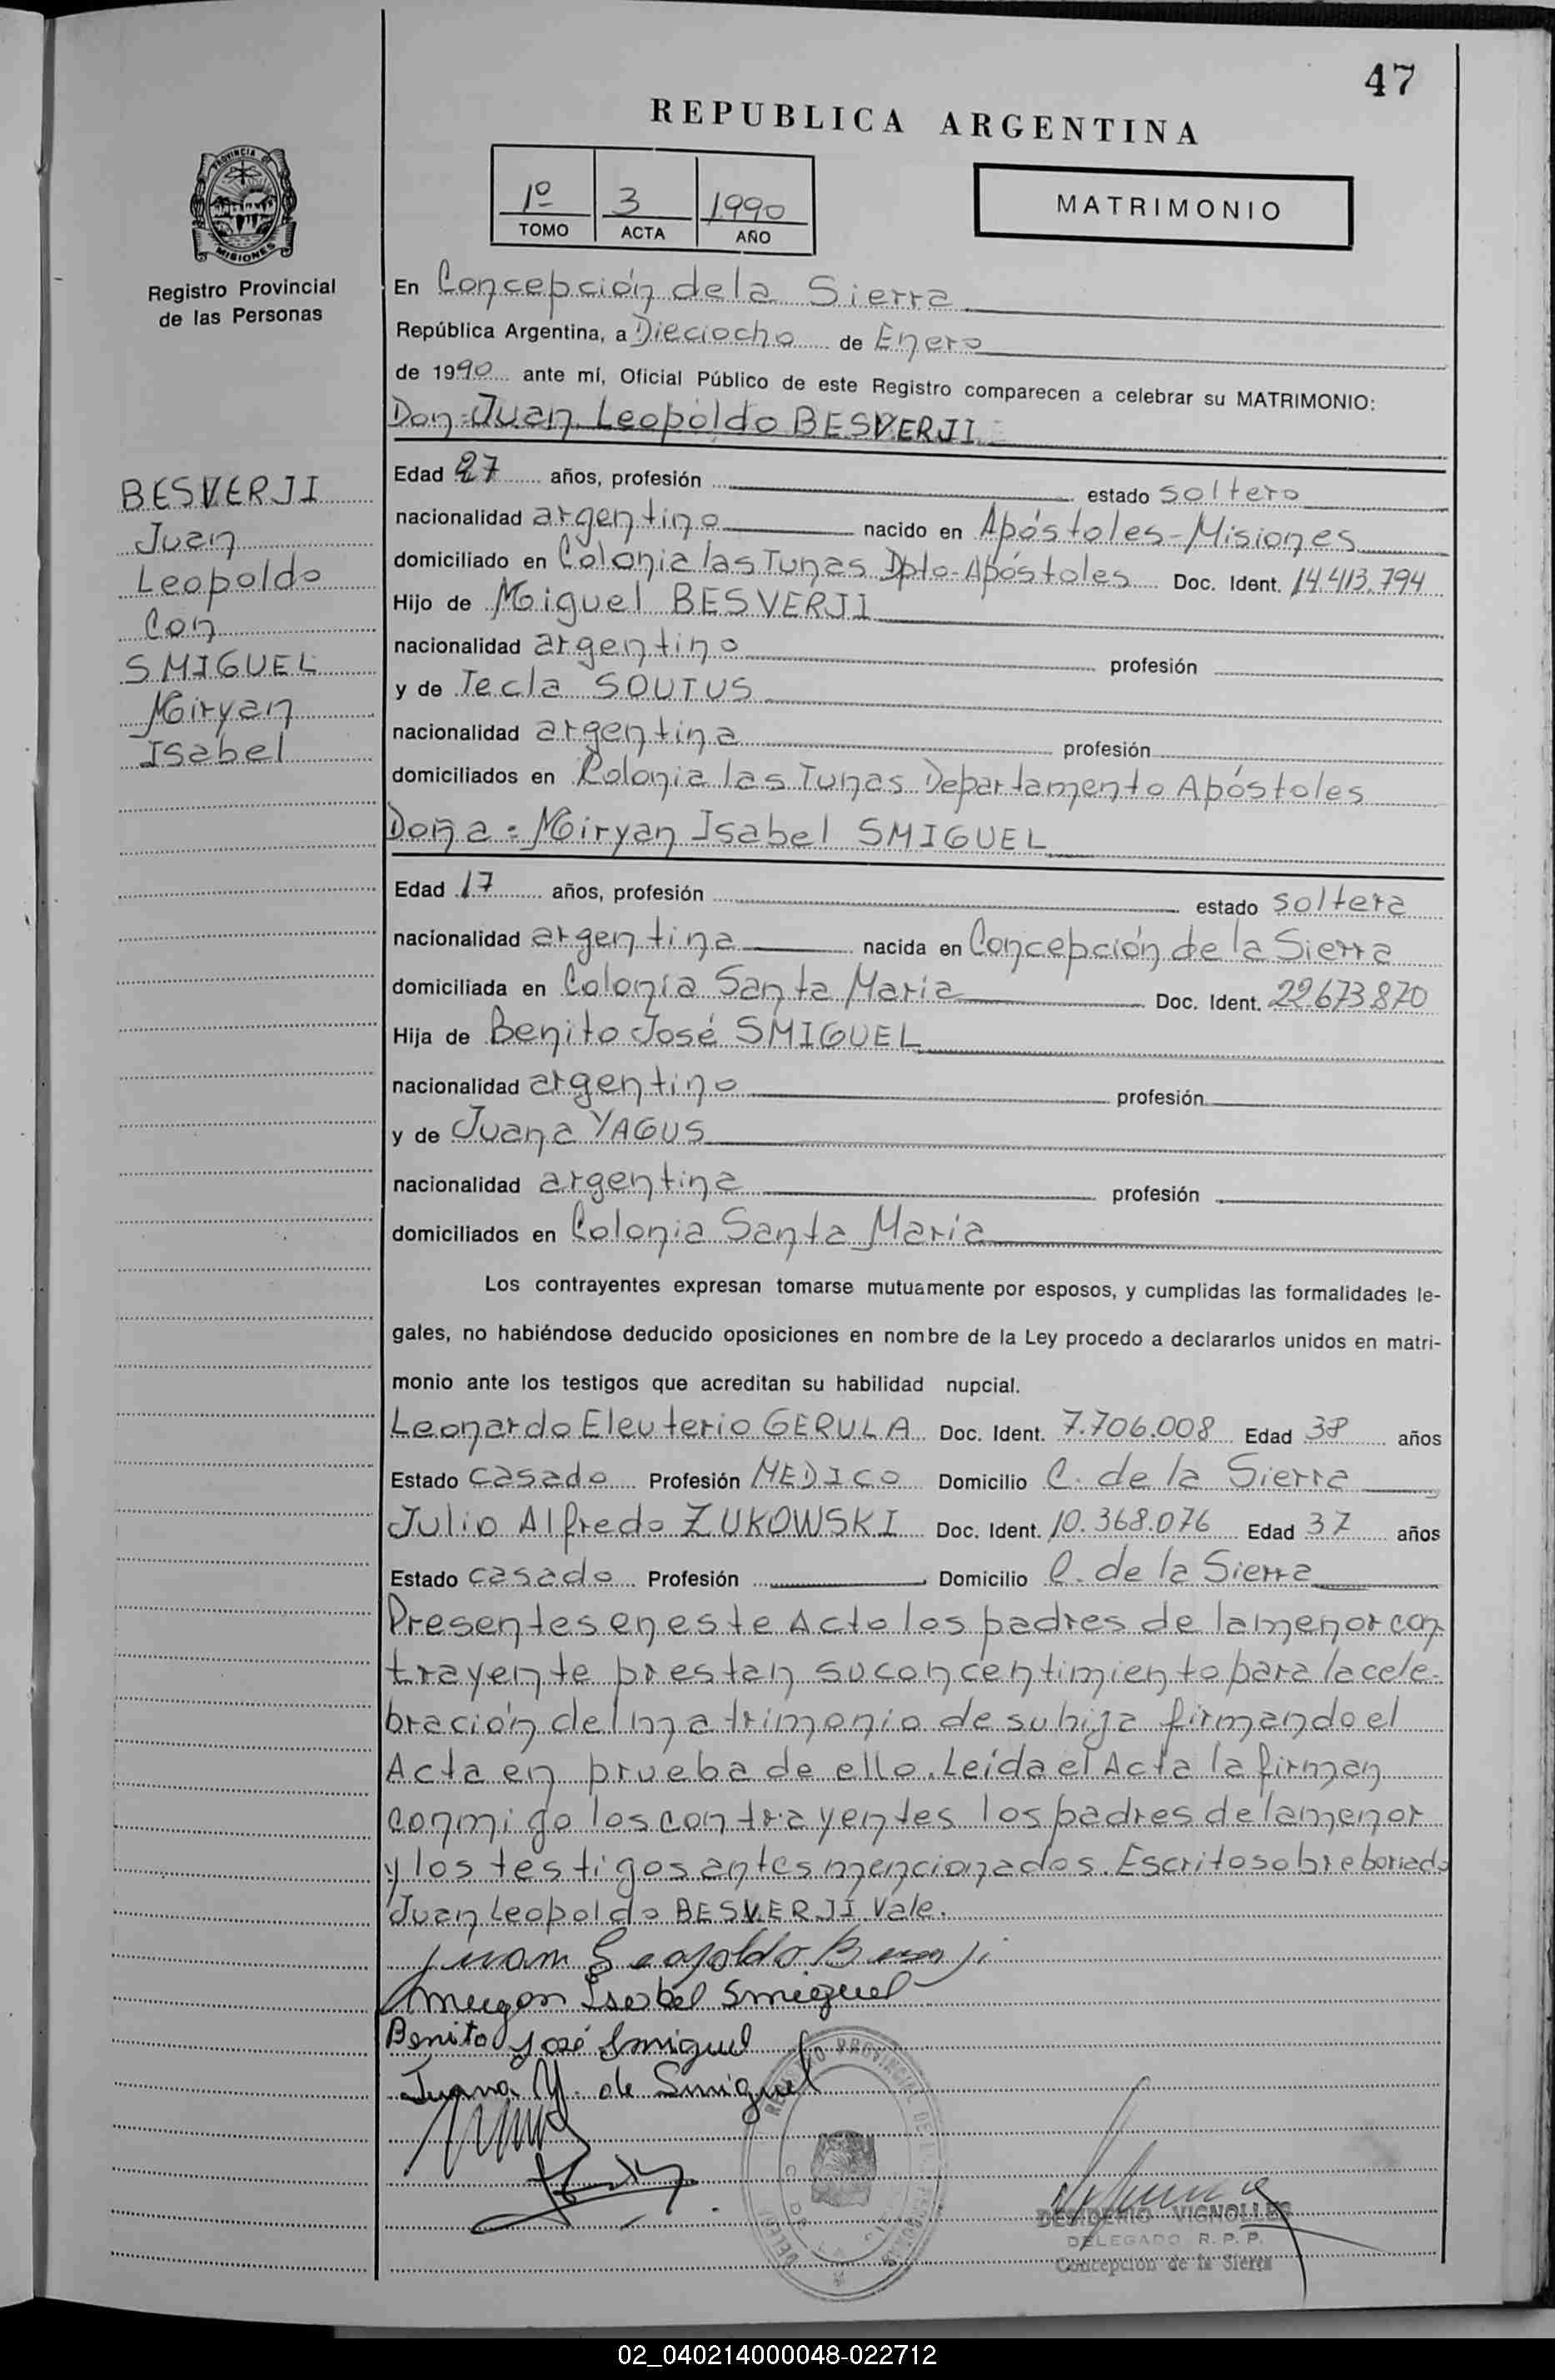 47
REPUBLICA ARGENTINA
1º 3 1990
TOMO ACTA AÑO
MATRIMONIO
PROVINCIA DE
MISIONES
Registro Provincial
de las Personas
En Concepción de la Sierra
República Argentina, a Dieciocho de Enero
de 1990 ante mí, Oficial Público de este Registro comparecen a celebrar su MATRIMONIO:
Don=Juan Leopoldo BESVERJI
BESVERJI
Juan
Leopoldo
Con
SMIGUEL
Miryan
Isabel
Edad 27 años, profesión estado soltero
nacionalidad argentino nacido en Apóstoles-Misiones
domiciliado en Colonia las Tunas Dpto-Apóstoles Doc. Ident. 14.413.794
Hijo de Miguel BESVERJI
nacionalidad argentino profesión
y de Tecla SOUTUS
nacionalidad argentina profesión
domiciliados en Colonia las Tunas Departamento Apóstoles
Doña=Miryan Isabel SMIGUEL
Edad 17 años, profesión estado soltera
nacionalidad argentina nacida en Concepción de la Sierra
domiciliada en Colonia Santa Maria Doc. Ident. 22.673.870
Hija de Benito José SMIGUEL
nacionalidad argentino profesión
y de Juana YAGUS
nacionalidad argentina profesión
domiciliados en Colonia Santa María
Los contrayentes expresan tomarse mutuamente por esposos, y cumplidas las formalidades le-
gales, no habiéndose deducido oposiciones en nombre de la Ley procedo a declararlos unidos en matri-
monio ante los testigos que acreditan su habilidad nupcial.
Leonardo Eleuterio GERULA Doc. Ident. 7.706.008 Edad 38 años
Estado casado Profesión MEDICO Domicilio C. de la Sierra
Julio Alfredo ZUKOWSKI Doc. Ident. 10.368.076 Edad 37 años
Estado casado Profesión Domicilio C. de la Sierra
Presentes en este Acto los padres de la menor con
trayente prestan su concentimiento para la cele-
bración del matrimonio de su hija firmando el
Acta en prueba de ello. Leída el Acta la firman
conmigo los contrayentes los padres de la menor
y los testigos antes mencionados. Escrito sobre borrado
Juan Leopoldo BESVERJI Vale.
Juan Leopoldo
Isabel Smiguel
Benito José Smiguel
Juana Y. de Smiguel
REGISTRO PROVINCIAL DE LAS PERSONAS
DESIDERIO VIGNOLLES
DELEGADO R.P.P.
Concepción de la Sierra
02_040214000048-022712